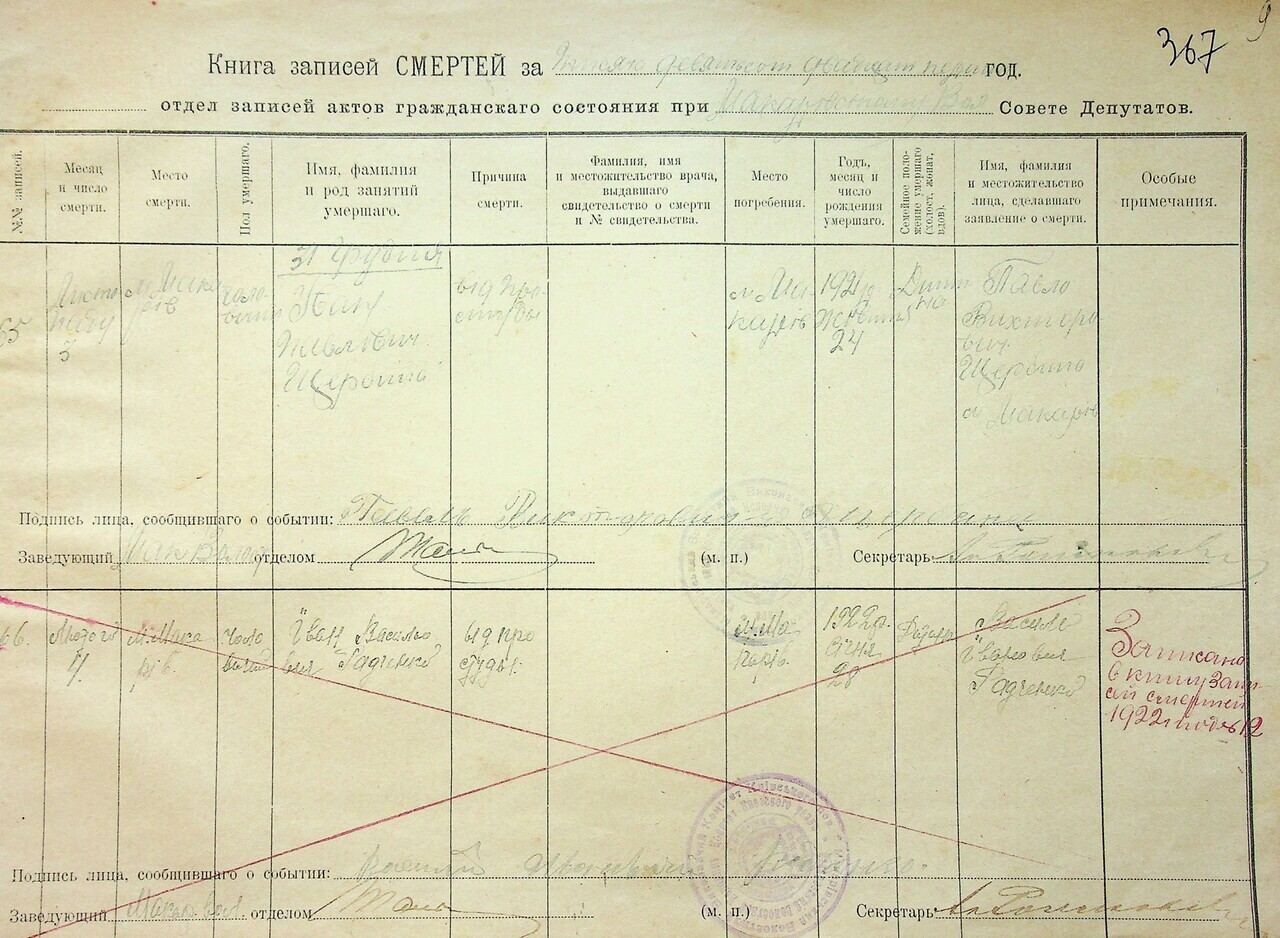 9
367
Книга записей СМЕРТЕЙ за тысяча девятьсот двадцать год.
отдел записей актов гражданскаго состоянія при Макаровском Вол Совете Депутатов.
№№ записей.
Месяц
и число
смерти.
Место
смерти.
Пол умершаго.
Имя, фамилия
и род занятий
умершаго.
Причина
смерти.
Фамилия, имя
и местожительство врача,
выдавшаго
свидетельство о смерти
и № свидетельства.
Место
погребения.
Годъ,
месяц и
число
рождения
умершаго.
Семейное поло-
жение умершаго
(холост, женат,
вдов).
Имя, фамилия
и местожительство
лица, сделавшаго
заявление о смерти.
Особые
примечания.
31 Грудня
65
Листо
паду
3
м. Мака
рів
чоло-
вичий
від про-
студы
м Ма-
карів
1921р
Жовтня
24
Дити
на
Павло
Викторо
вич
м Макарів
Подпись лица, сообщившаго о событии: Павелъ Викторович
Заведующий Мак Волос отделом
(м. п.)
Секретарь
66.
Лютого
м. Мака
рів.
чоло
вичий
Іван Васильо
вич Радченко
від про
студы.
м. Ма
карів.
1922р.
січня
28
Василь
Іванович
Радченко
Записано
в книгу запи-
сей смертей
1922 года 12
Подпись лица, сообщившаго о событии: Василий Иванович Радченко.
Заведующий Макар вол. отделом
(м. п.)
Секретарь